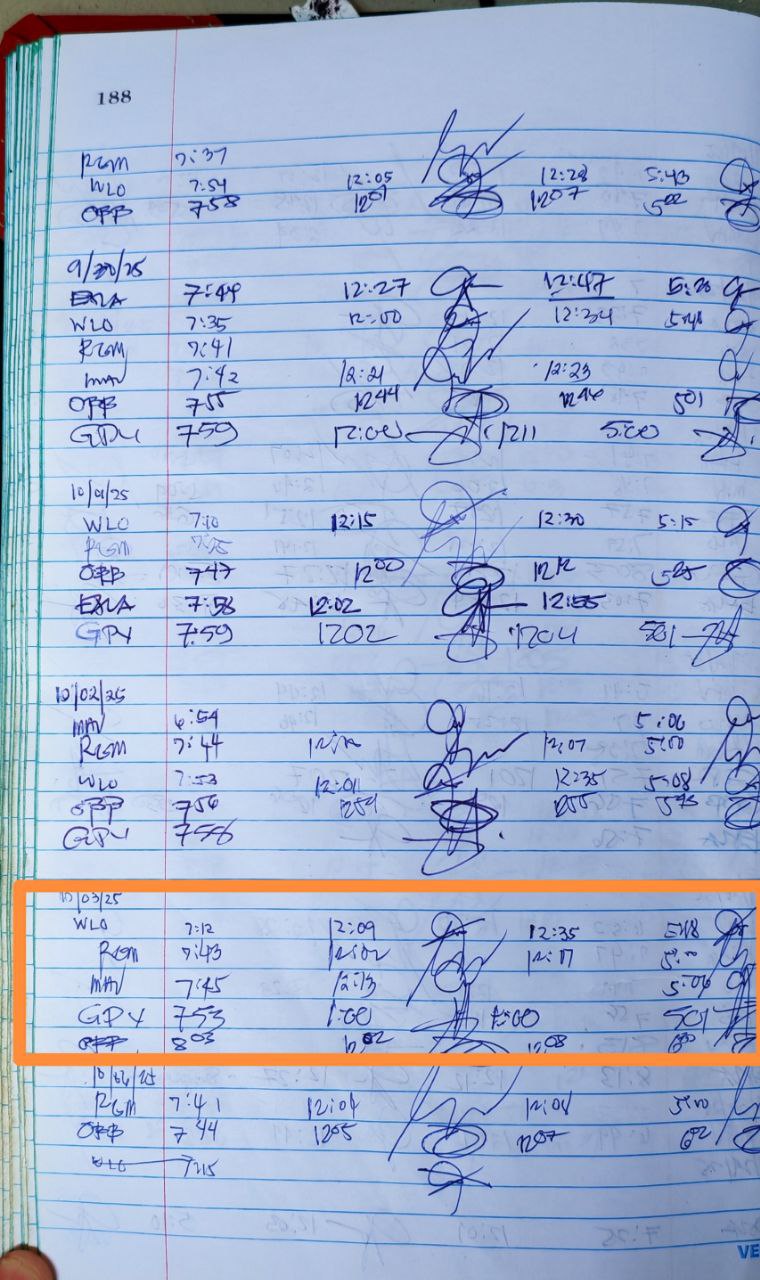 188
RGM 7:37
WLO 7:54 12:05 12:28 5:43
OPB 758 1207 1207 500
9/30/25
EXLA 7:49 12:27 12:47 5:20
WLO 7:35 12:00 12:34
RGM 7:41
MAV 7:42 12:21 12:23
OPB 755 1244 1246 501
GPY 759 12:00 1211 5:00
10/01/25
WLO 7:10 12:15 12:30 5:15
RGM
OPB 747 1200 1212 525
EXLA 7:58 12:02 12:55
GPY 7:59 1202 1204 501
10/02/25
MAV 6:54 5:06
RGM 7:44 12:07 5:00
WLO 7:53 12:01 12:35 5:08
OPB 756 1254 1255
GPY 758
10/03/25
WLO 7:12 12:09 12:35 5:48
RGM 7:43 12:02 12:17 5:00
MAV 7:45 12:13 5:06
GPY 753 1:00 1:00 501
803 1202 1208 600
10/06/25
RGM 7:41 12:04 12:08 5:00
OPB 744 1205 1207 602
WLO 7:15
VE